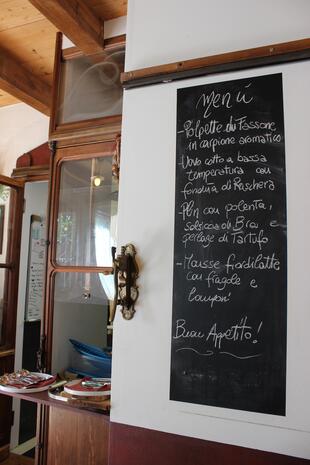 Menù
- Polpette di Fassone
in carpione aromatico
Uovo cotto a bassa
temperatura con
fonduta di Raschera
- Plin con polenta,
salsiccia di Bra e
perlage di Tartufo
- Mousse fiordilatte
con fragole e
lamponi
Buon Appetito!